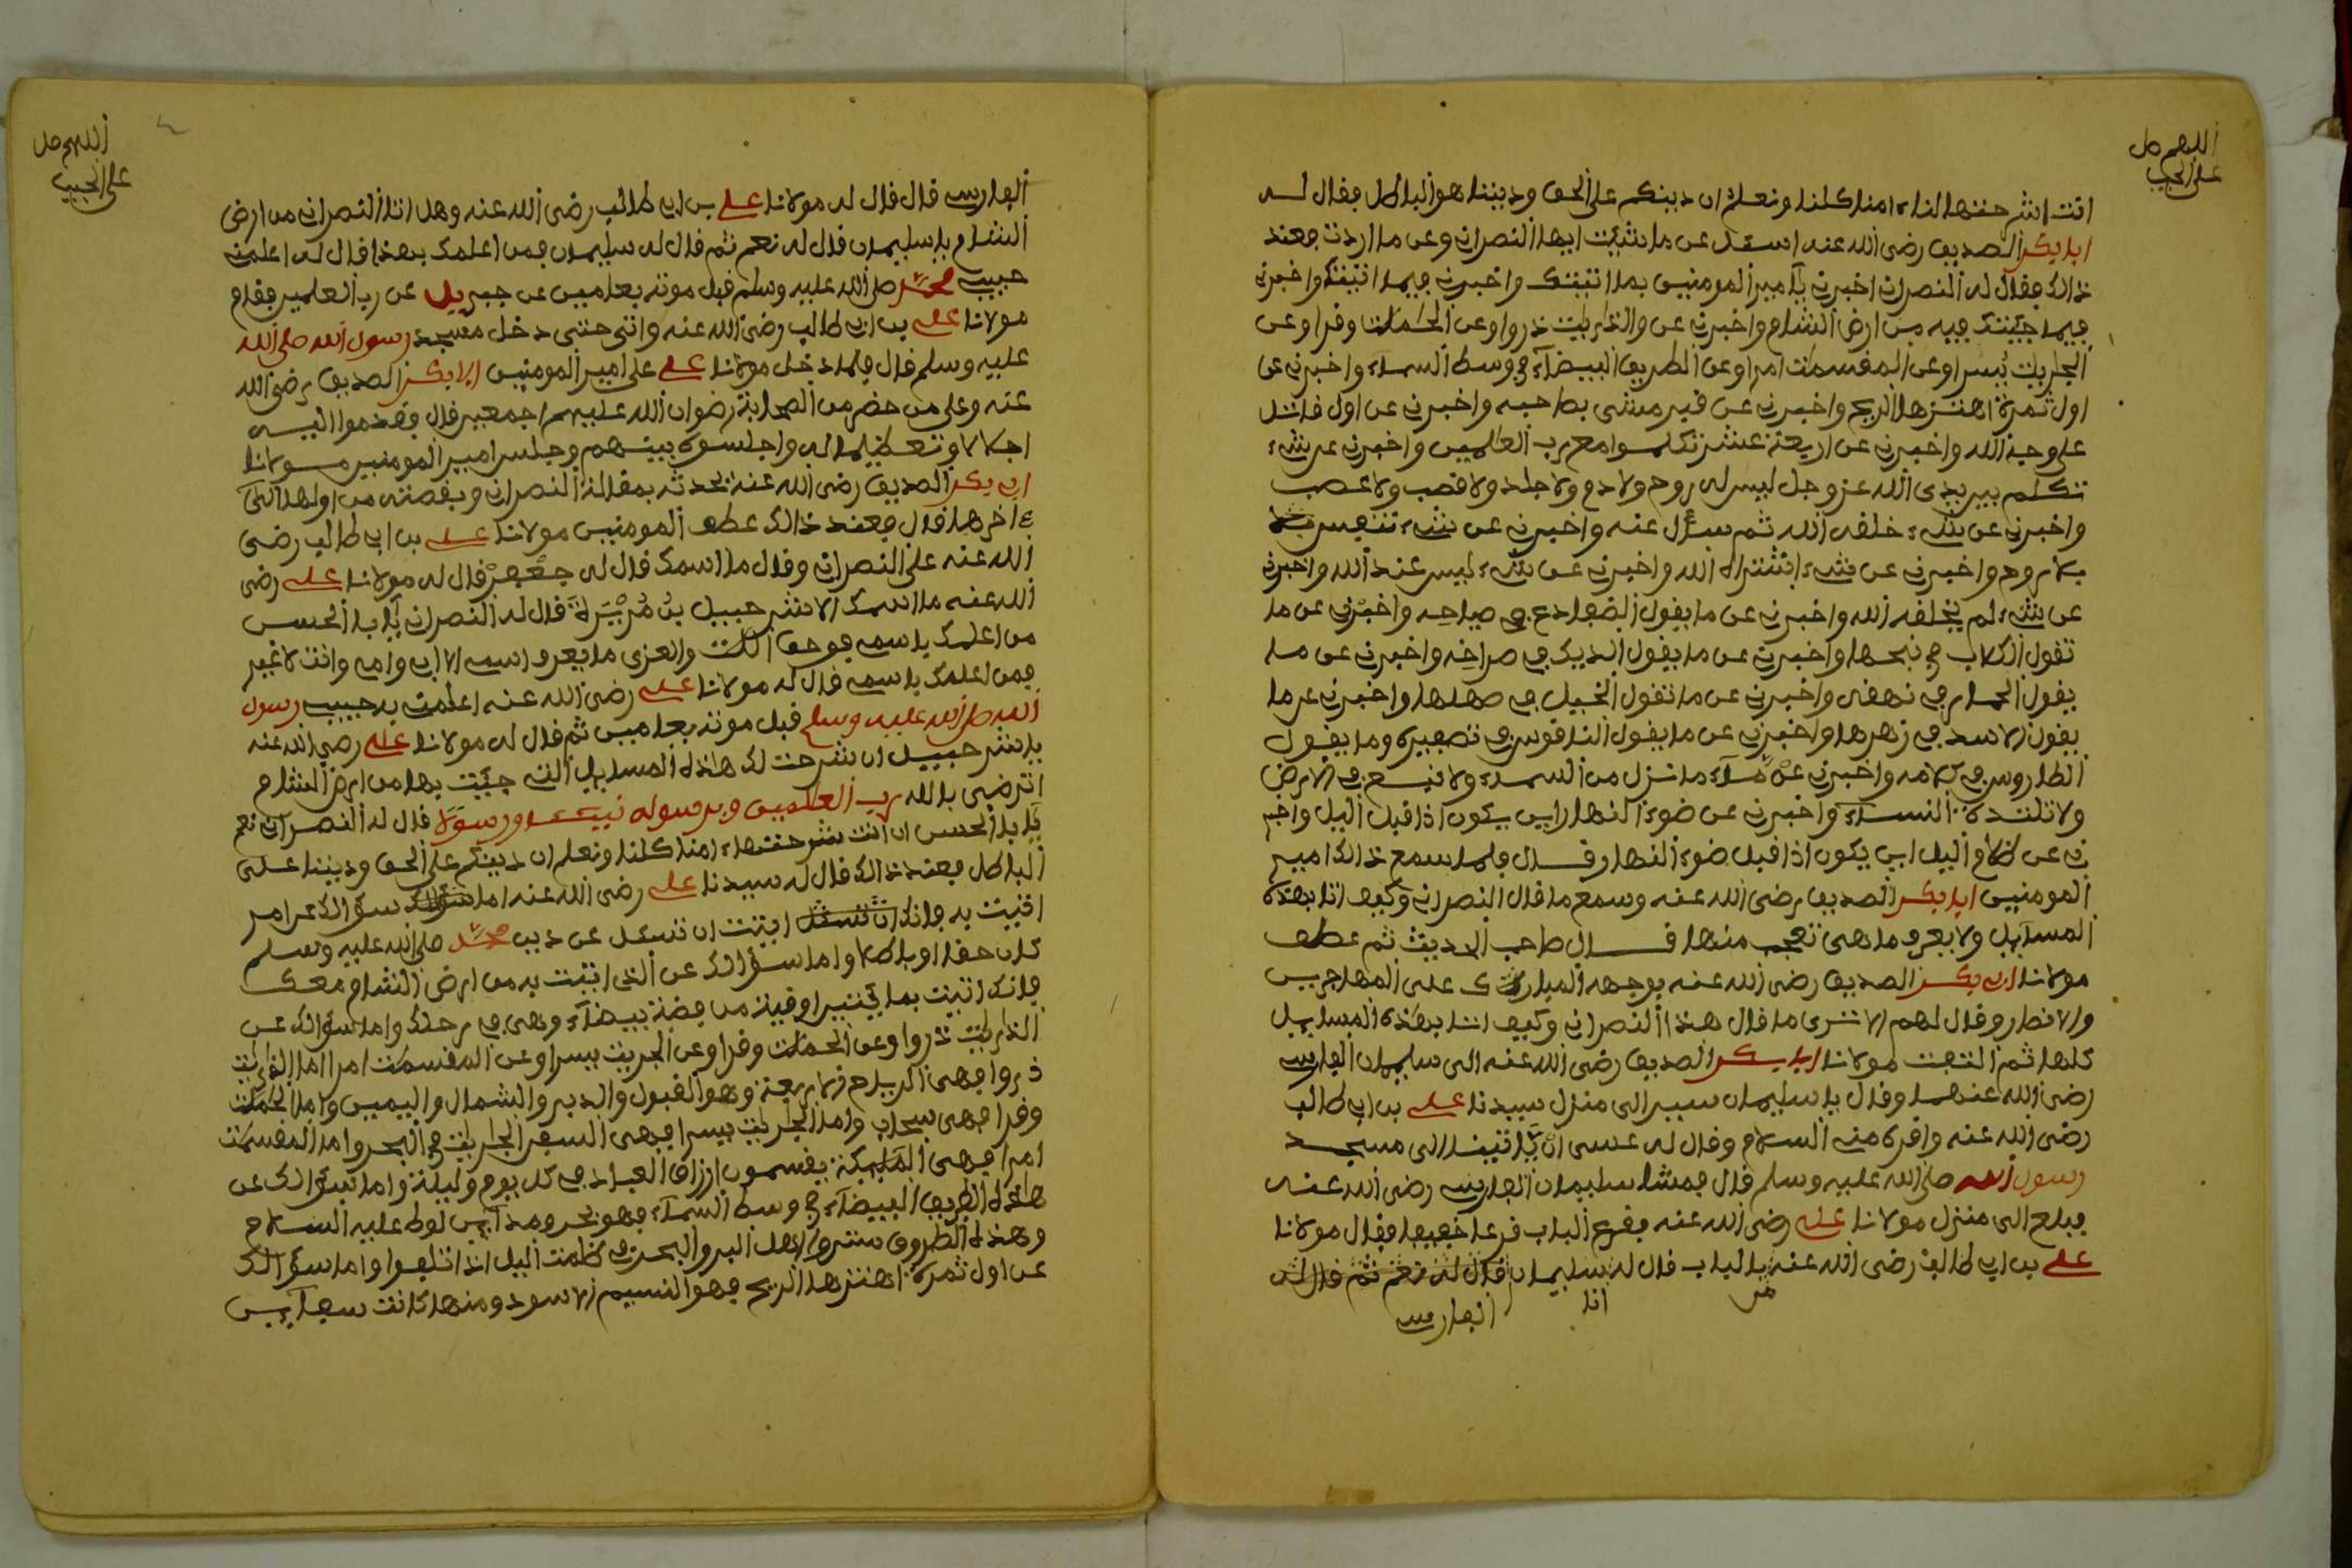 اللهم صل
على الحبيب
انت اشرحتها لنا امنا كلنا ونعلم ان دينكم على الحق وديننا هو الباطل فقال لـه
ابا بكر الصديق رضى الله عنه اسئل عن ما شيت ايها النصرانى وعن ما اردت فعند
ذالك فقال له النصرانى اخبرنى يا امير المومنين بما اتيتك واخبرنى فيما اتيتك واخبرنى
فيما جيتك فيه من ارض الشام واخبرنى عن والذاريت ذروا وعن الحملت وفرا وعن
الجاريت يسرا وعن المقسمت امرا وعن الطريق البيضآء فى وسط السماء واخبرنى عن
اول ثمرة اهتزها الريح واخبرنى عن قبر مشى بصاحبه واخبرنى عن اول قاتل
على وجه الله واخبرنى عن اربعة عشر تكلموا مع رب العلمين واخبرنى عن شىء
تكلم بين يدى الله عز وجل ليس له روح ولا دم ولا جلد ولا قصب ولا عصب
واخبرنى عن شىء خلقه الله ثم سئل عنه واخبرنى عن شىء تنفس
بلا روح واخبرنى عن شىء اشتراه الله واخبرنى عن شىء ليس عند الله واخبرنى
عن شىء لم يخلقه الله واخبرنى عن ما يقول الضفادع فى صياحه واخبرنى عن ما
تقول الكلاب فى نبحها واخبرنى عن ما يقول الديك فى صراخه واخبرنى عن ما
يقول الحمار فى نهقه واخبرنى عن ما تقول الخيل فى صهلها واخبرنى عن ما
يقول الاسد فى زهرها واخبرنى عن ما يقول الناقوس فى تصفيره وما يقول
الطاروس فى كلامه واخبرنى عن مآء ما نزل من السماء ولا نبع فى الارض
ولا تلنده النساء واخبرنى عن ضوء النهار اين يكون اذا قبل اليل واخبر
نى عن ظلام اليل اين يكون اذا قبل ضوء النهار قـال فلما سمع ذالك امير
المومنين ابا بكر الصديق رضى الله عنه وسمع ما قال النصرانى وكيف اتا بهذه
المسآيل ولا يعرف ما هى تعجب منها قـال صاحب الحديث ثم عطف
مولانا ابى بكر الصديق رضى الله عنه بوجهه المبارك على المهاجرين
والانصار وقال لهم الا ترى ما قال هذا النصرانى وكيف اتا بهذه المسايل
كلها ثم التفت مولانا ابا بكر الصديق رضى الله عنه الى سليمان الفارسى
رضى الله عنهما وقال يا سليمان سير الى منزل سيدنا على بن ابى طالب
رضى الله عنه واقره منى السلام وقال له عسى ان ياتينا الى مسجد
رسول الله صلى الله عليه وسلم قال فمشا سليمان الفارسى رضى الله عنه
فبلغ الى منزل مولانا على رضى الله عنه فقرع الباب قرعا خفيفا فقال مولانا
على بن ابى طالب رضى الله عنه من بالباب قال له سليمان قال له نعم ثم قال له
انا
الفارسى
اللهم صل
على الحبيب
الفارسى قال قال له مولانا على بن ابى طالب رضى الله عنه وهل اتا النصرانى من ارض
الشام يا سليمان قال له نعم ثم قال له سليمان فمن اعلمك بهذا قال له اعلمنى
حبيبى محمد صلى الله عليه وسلم قبل موته بعامين عن جبريل عن رب العلمين فقام
مولانا على بن ابى طالب رضى الله عنه واتى حتى دخل مسجد رسول الله صلى الله
عليه وسلم قال فلما دخل مولانا على على امير المومنين ابا بكر الصديق رضى الله
عنه وعلى من حضر من الصحابة رضوان الله عليهم اجمعين قال فقدموا اليـه
اجلالا وتعظيما له واجلسوه بينهم وجلس امير المومنين مـولانا
ابى بكر الصديق رضى الله عنه يحدثه بمقالة النصرانى وبقصته من اولها الى
ءاخرها قال فعند ذالك عطف المومنين مولانا على بن ابى طالب رضى
الله عنه على النصرانى وقال ما اسمك قال له جعفر قال له مولانا على رضى
الله عنه ما اسمك الا شرحبيل بن مريرة قال له النصرانى يا با الحسن
من اعلمك باسمى فوحق اللت والعزى ما يعرف اسمى الا ابى وامى وانت لا غير
فمن اعلمك باسمى قال له مولانا على رضى الله عنه اعلمنى به حبيبى رسول
الله صلى الله عليه وسلم قبل موته بعامين ثم قال له مولانا على رضى الله عنه
يا شرحبيل ان شرحت لك هاذه المسايل التى جيت بها من ارض الشام
اترضى بالله رب العلمين وبرسوله نبيـا ورسولا قال له النصرانى نعم
يا با الحسن ان انت شرحتها امنا كلنا ونعلم ان دينكم على الحق وديننا على
الباطل فعند ذالك قال له سيدنا على رضى الله عنه اما سؤالك عن امر
اتيت به فانك اتيت ان تسئل عن دين محمد صلى الله عليه وسلم
كان حقا او باطلا واما سؤالك عن الذى اتيت به من ارض الشام معك
فانك اتيت بمايتين اوقية من فضة بيضآء وهى فى رحلك واما سؤالك عن
الذاريت ذروا وعن الحملت وفرا وعن الجريت يسرا وعن المقسمت امرا اما الذاريت
ذروا فهى الرياح الاربعة وهو القبول والدبر والشمال واليمين واما الحملت
وفرا فهى سحاب واما الجاريت يسرا فهى السفن الجاريت فى البحر واما المقسمت
امرا فهى المليكة يقسمون ارزاق العباد فى كل يوم وليلة واما سؤالك عن
هاذه الطريق البيضآء فى وسط السمآء فهو نحر ومدآين لوط عليه السلام
وهذه الطروق سترها لاهل البر والبحر فى ظلمت اليل اذا تلفوا واما سؤالك
عن اول ثمرة اهتزها الريح فهو النسيم الاسود ومنها كانت سفآين